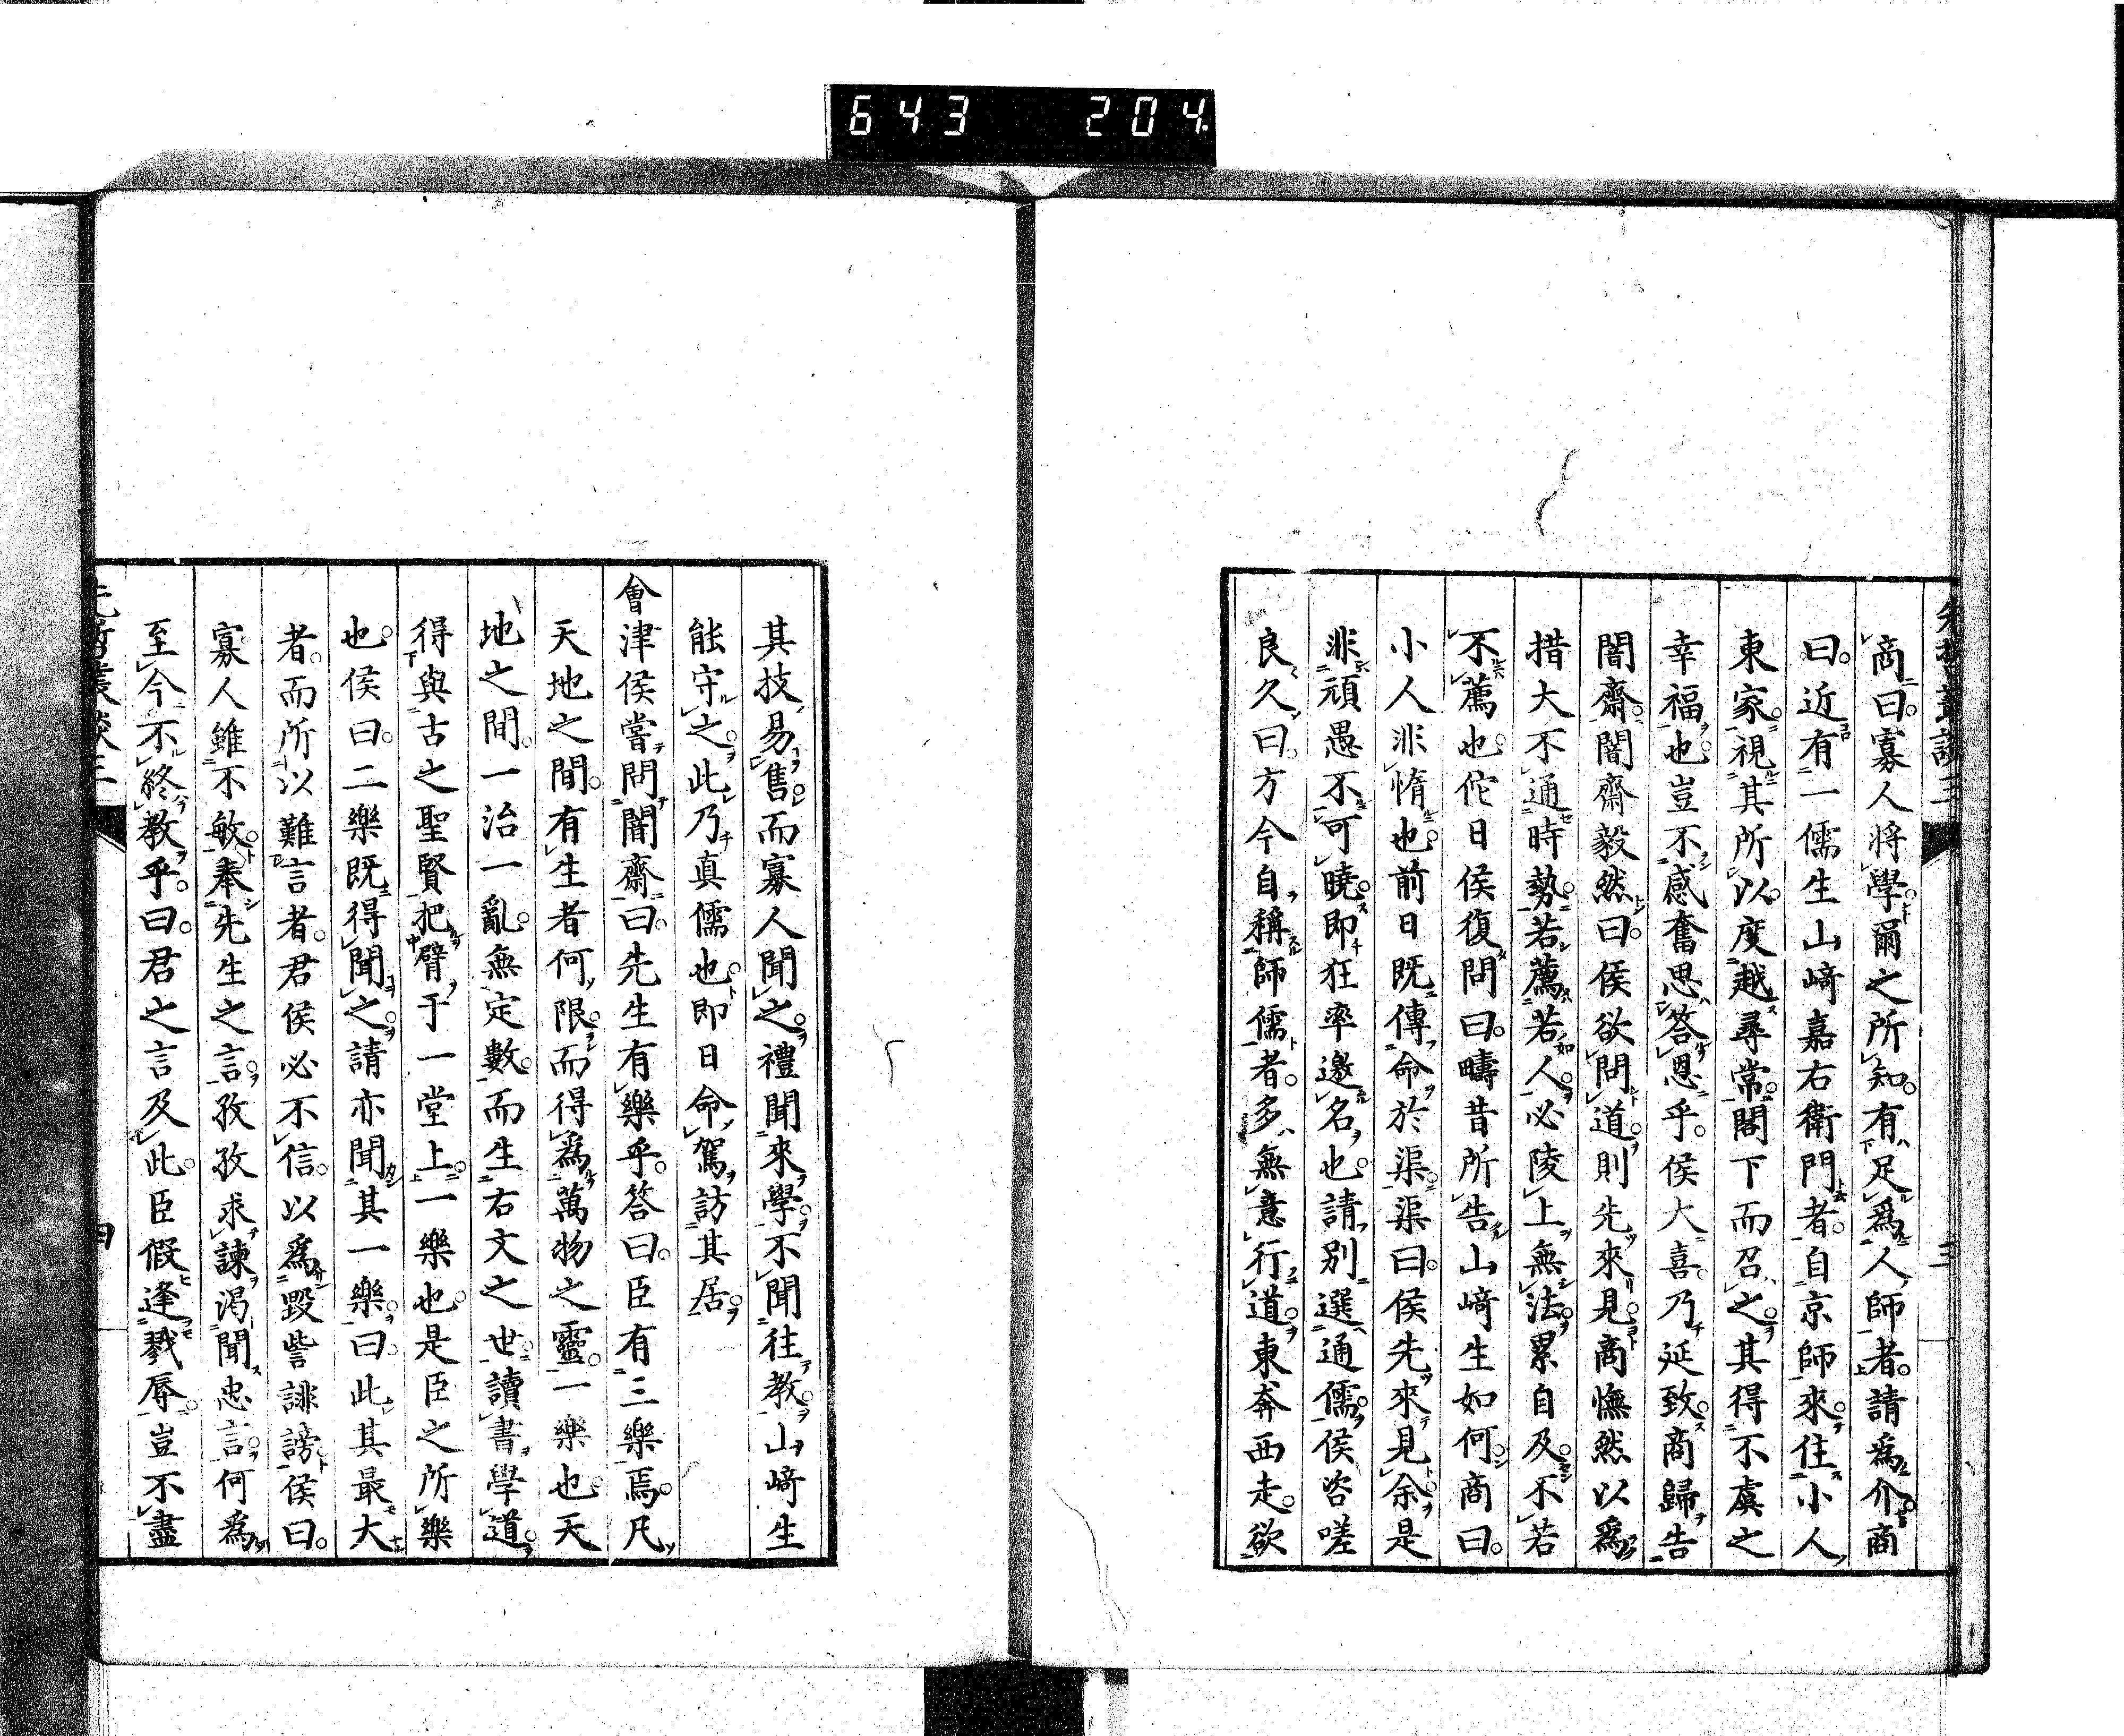 643 204
先哲叢談三
三
商曰。寡人將學爾之所知。有足爲人師者。請爲介。商
曰。近有一儒生山﨑嘉右衛門者。自京師來住。小人
東家。視其所以。度越尋常。閤下而召之。其得不虞之
幸福也。豈不感奮思答恩乎。侯大喜。乃延致。商歸告
闇齋。闇齋毅然曰。侯欲問道。則先來見。商憮然以爲
措大不通時勢。若薦若人。必陵上無法。累自及。不若
不薦也。佗日侯復問曰。疇昔所告山﨑生如何。商曰。
小人非惰也。前日既傳命於渠。渠曰。侯先來見余。是
非頑愚不可曉。即狂率邀名也。請別選通儒。侯咨嗟
良久曰。方今自稱師儒者。多無意行道。東奔西走。欲
其技易售。而寡人聞之。禮聞來學。不聞往教。山﨑生
能守之。此乃真儒也。即日命駕訪其居。
會津侯嘗問闇齋曰。先生有樂乎。答曰。臣有三樂焉。凡
天地之間。有生者何限。而得爲萬物之靈。一樂也。天
地之間。一治一亂。無定數。而生右文之世。讀書學道。
得與古之聖賢把臂于一堂上。一樂也。是臣之所樂
也。侯曰。二樂既得聞之。請亦聞其一樂。曰。此其最大
者。而所以難言者。君侯必不信。以爲毀訾誹謗。侯曰。
寡人雖不敏。奉先生之言。孜孜求諫。渴聞忠言。何爲
至今不終教乎。曰。君之言及此。臣假逢戮辱。豈不盡
先哲叢談三
四